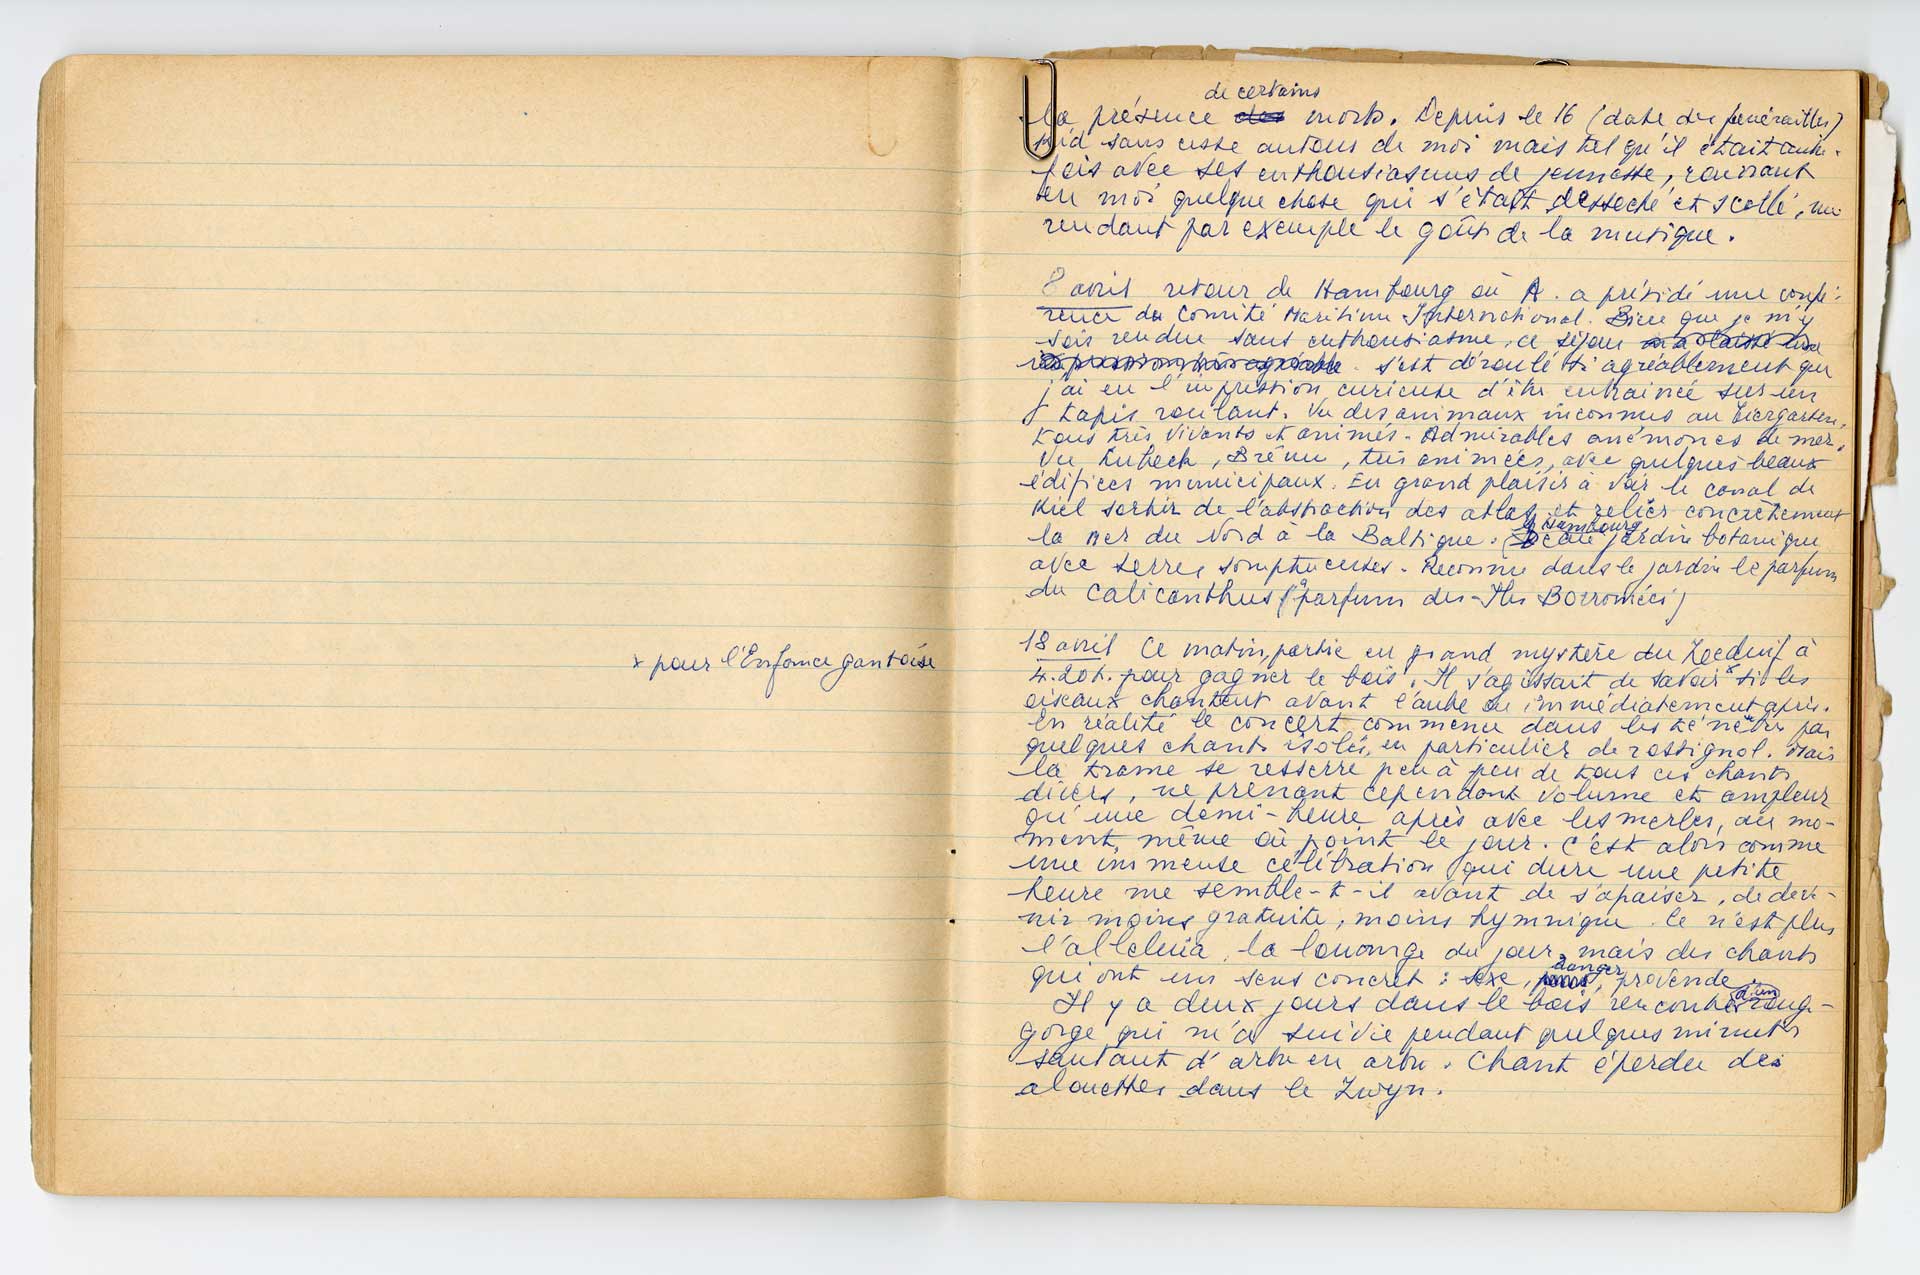 × pour l'Enfance gantoise
de certains
la présence des morts. Depuis le 16 (date des funérailles)
sans cesse autour de moi mais tel qu'il était autre-
fois avec ses enthousiasmes de jeunesse, rouvrant
en moi quelque chose qui s'était desséché et scellé, me
rendant par exemple le goût de la musique.
8 avril retour de Hambourg où A. a présidé une confé-
rence du Comité Maritime International. Bien que je m'y
sois rendue sans enthousiasme, ce séjour m'a laissé une
impression agréable s'est déroulé si agréablement que
j'ai eu l'impression curieuse d'être entrainée sur un
tapis roulant. Vu des animaux inconnus au Tiergarten,
tous très vivants et animés. Admirables anémones de mer.
Vu Lubeck, Brême, très animées, avec quelques beaux
édifices municipaux. Eu grand plaisir à voir le canal de
Kiel sortir de l'abstraction des atlas et relier concrètement
à Hambourg
la Mer du Nord à la Baltique. jardin botanique
avec serres somptueuses. Reconnu dans le jardin le parfum
du Calicanthus (parfum des Iles Borromées)
18 avril Ce matin, partie en grand mystère du Zeeduif à
4.20h. pour gagner le bois. Il s'agissait de savoir × si les
oiseaux chantent avant l'aube ou immédiatement après.
En réalité le concert commence dans les ténèbres par
quelques chants isolés, en particulier de rossignol. Mais
la trame se resserre peu à peu de tous ces chants
divers, ne prenant cependant volume et ampleur
qu'une demi-heure après avec les merles, au mo-
ment même où point le jour. C'est alors comme
une immense célébration qui dure une petite
heure me semble-t-il avant de s'apaiser, de deve-
nir moins gratuite, moins hymnique. Ce n'est plus
l'alleluia, la louange du jour, mais des chants
danger
qui ont un sens concret : sexe, provende.
d'un
Il y a deux jours dans le bois rencontre roug-
gorge qui m'a suivie pendant quelques minutes
sautant d'arbre en arbre. Chant éperdu des
alouettes dans le Zwyn.